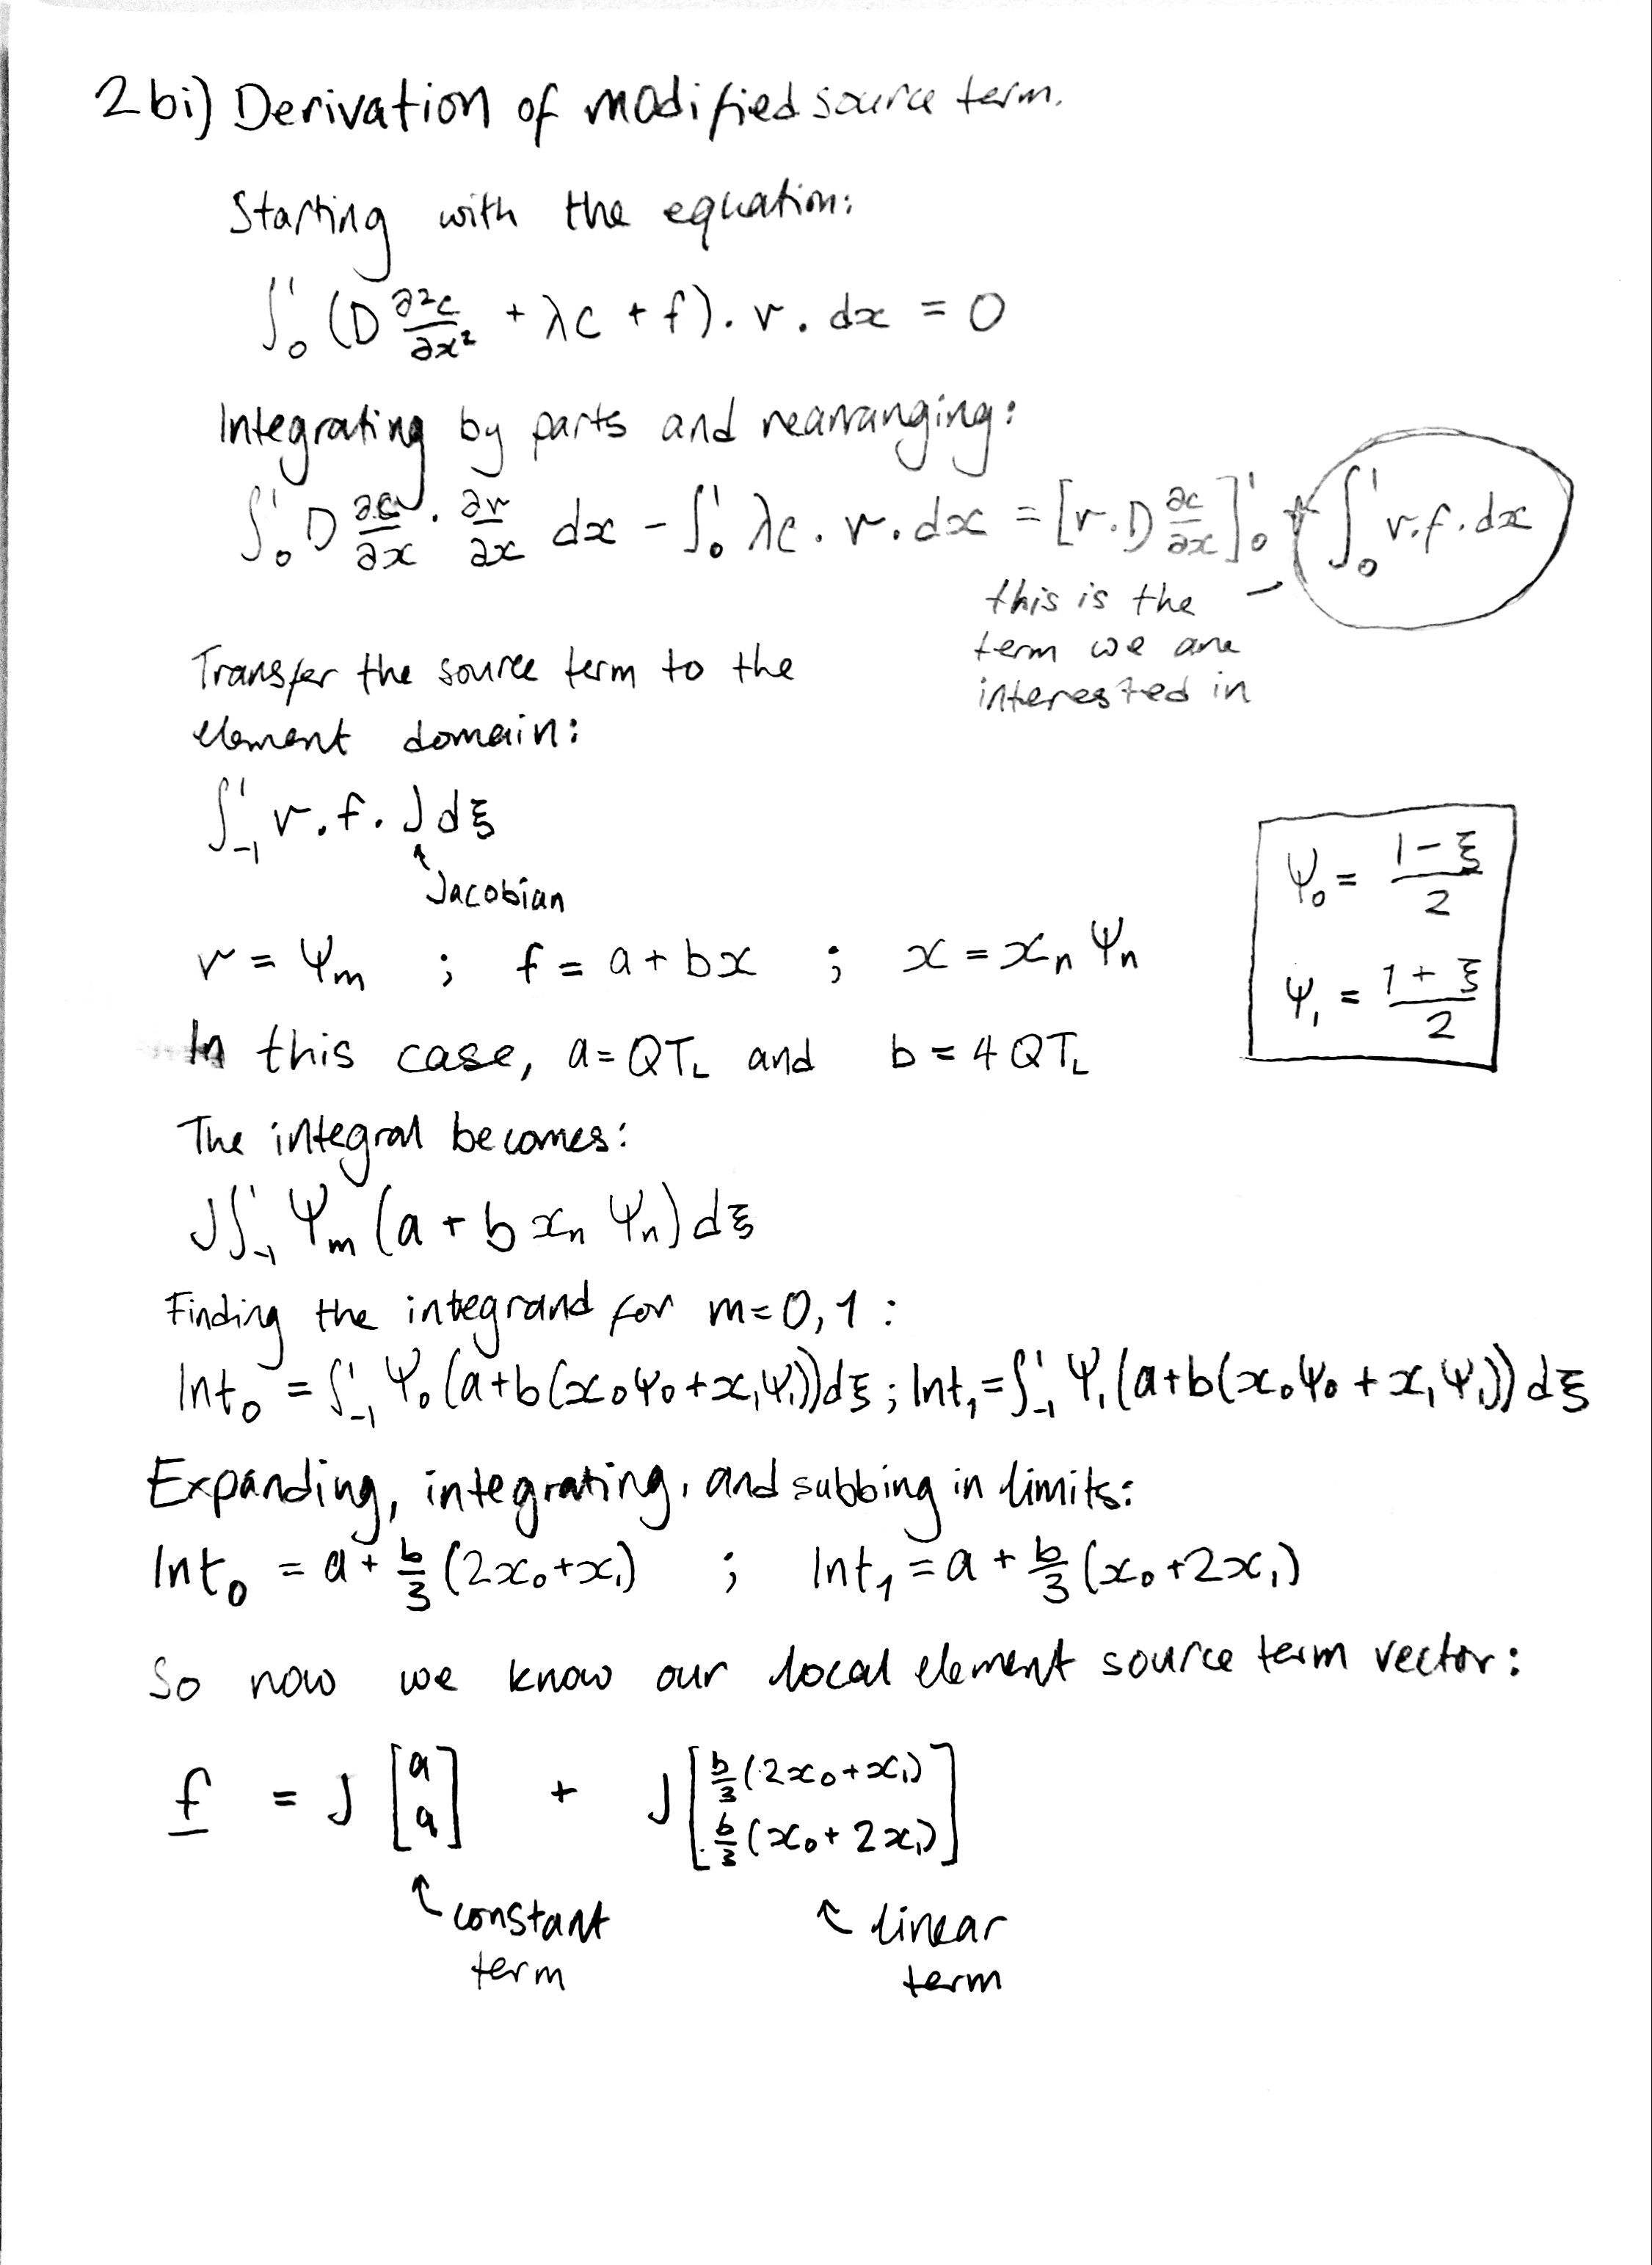 2bi) Derivation of modified source term.
Starting with the equation:
∫₀¹ (D ∂²c/∂x² + λc + f) . v . dx = 0
Integrating by parts and rearranging:
∫₀¹ D ∂c/∂x . ∂v/∂x dx - ∫₀¹ λc . v . dx = [v . D ∂c/∂x]₀¹ + ∫₀¹ v.f.dx
this is the
term we are
interested in
Transfer the source term to the
element domain:
∫₋₁¹ v . f . J dξ
Jacobian
Ψ₀ = (1-ξ)/2
v = Ψm ; f = a + bx ; x = xn Ψn
Ψ₁ = (1+ξ)/2
In this case, a = QTL and b = 4QTL
The integral becomes:
J∫₋₁¹ Ψm (a + b xn Ψn) dξ
Finding the integrand for m=0,1 :
Int₀ = ∫₋₁¹ Ψ₀ (a+b(x₀Ψ₀+x₁Ψ₁))dξ ; Int₁ = ∫₋₁¹ Ψ₁ (a+b(x₀Ψ₀ + x₁Ψ₁)) dξ
Expanding, integrating, and subbing in limits:
Int₀ = a + b/3 (2x₀+x₁) ; Int₁ = a + b/3 (x₀+2x₁)
So now we know our local element source term vector:
f = J [a a] + J [b/3 (2x₀+x₁) b/3 (x₀+2x₁)]
constant linear
term term